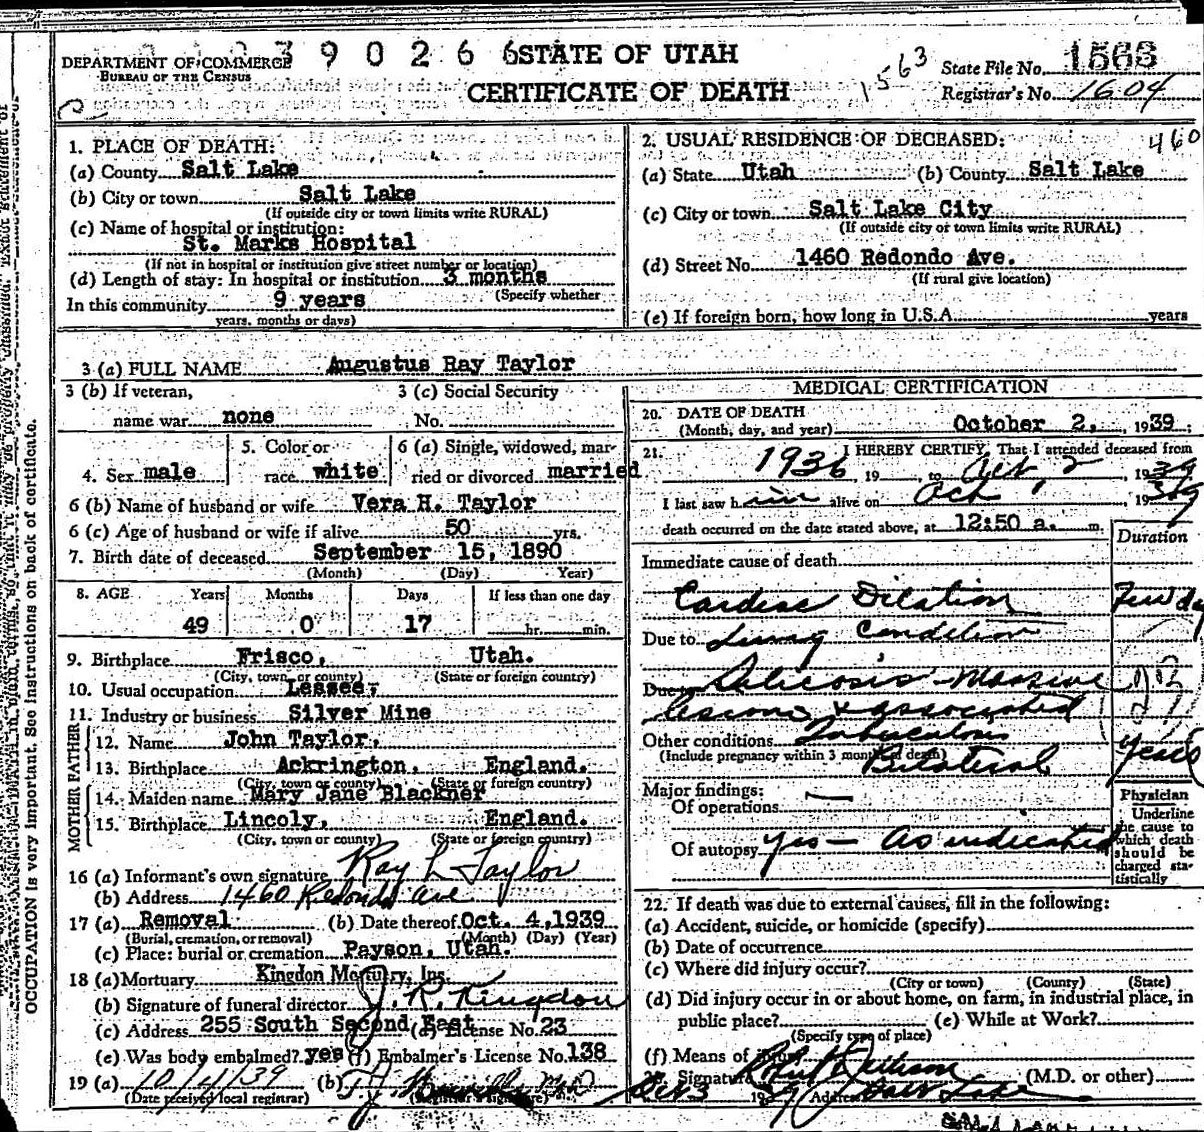 39026 6 STATE OF UTAH
DEPARTMENT OF COMMERCE
BUREAU OF THE CENSUS
CERTIFICATE OF DEATH
1563
State File No. 1563
Registrar's No. 1604
460
1. PLACE OF DEATH:
(a) County Salt Lake
(b) City or town Salt Lake
(If outside city or town limits write RURAL)
(c) Name of hospital or institution:
St. Marks Hospital
(If not in hospital or institution give street number or location)
(d) Length of stay: In hospital or institution 3 months
(Specify whether
In this community 9 years
years, months or days)
2. USUAL RESIDENCE OF DECEASED:
(a) State Utah (b) County Salt Lake
(c) City or town Salt Lake City
(If outside city or town limits write RURAL)
(d) Street No. 1460 Redondo Ave.
(If rural give location)
(e) If foreign born, how long in U.S.A. years
3 (a) FULL NAME Augustus Ray Taylor
3 (b) If veteran, 3 (c) Social Security
name war none No.
4. Sex male 5. Color or race white 6 (a) Single, widowed, married or divorced married
6 (b) Name of husband or wife Vera H. Taylor
6 (c) Age of husband or wife if alive 50 yrs.
7. Birth date of deceased September 15, 1890
(Month) (Day) Year)
8. AGE Years Months Days If less than one day
49 0 17 hr. min.
9. Birthplace Frisco, Utah.
(City, town, or county) (State or foreign country)
10. Usual occupation Lessee,
11. Industry or business Silver Mine
FATHER
12. Name John Taylor,
13. Birthplace Ackrington, England.
(City, town or county) (State or foreign country)
MOTHER
14. Maiden name Mary Jane Blackner
15. Birthplace Lincoly, England.
(City, town or county) (State or foreign country)
16 (a) Informant's own signature Ray L Taylor
(b) Address 1460 Redondo Ave
17 (a) Removal (b) Date thereof Oct. 4, 1939
(Burial, cremation, or removal) (Month) (Day) (Year)
(c) Place: burial or cremation Payson, Utah.
18 (a) Mortuary Kingdon Mortuary, Inc.
(b) Signature of funeral director J. R. Kingdon
(c) Address 255 South Second East (d) License No. 23
(e) Was body embalmed? yes (f) Embalmer's License No. 138
19 (a) 10/4/39 (b)
(Date received local registrar) (Registrar's signature)
MEDICAL CERTIFICATION
20. DATE OF DEATH
(Month, day, and year) October 2, 1939.
21. I HEREBY CERTIFY, That I attended deceased from
1936 19 , to Oct 2 1939
I last saw him alive on Oct 1, 1939
death occurred on the date stated above, at 12:50 a. m.
Duration
Immediate cause of death
Cardiac Dilation Few da
Due to Lung Condition
Due to Silicosis - Massive
lesions & associated
Other conditions Tuberculous years
(Include pregnancy within 3 months of death) Bilateral
Major findings:
Of operations —
Of autopsy yes - As indicated
Physician
Underline the cause to which death should be charged statistically
22. If death was due to external causes, fill in the following:
(a) Accident, suicide, or homicide (specify)
(b) Date of occurrence
(c) Where did injury occur?
(City or town) (County) (State)
(d) Did injury occur in or about home, on farm, in industrial place, in
public place? (e) While at Work?
(Specify type of place)
(f) Means of
Signature (M.D. or other)
Oct 3 1939 Address Salt Lake
OCCUPATION is very important. See instructions on back of certificate.